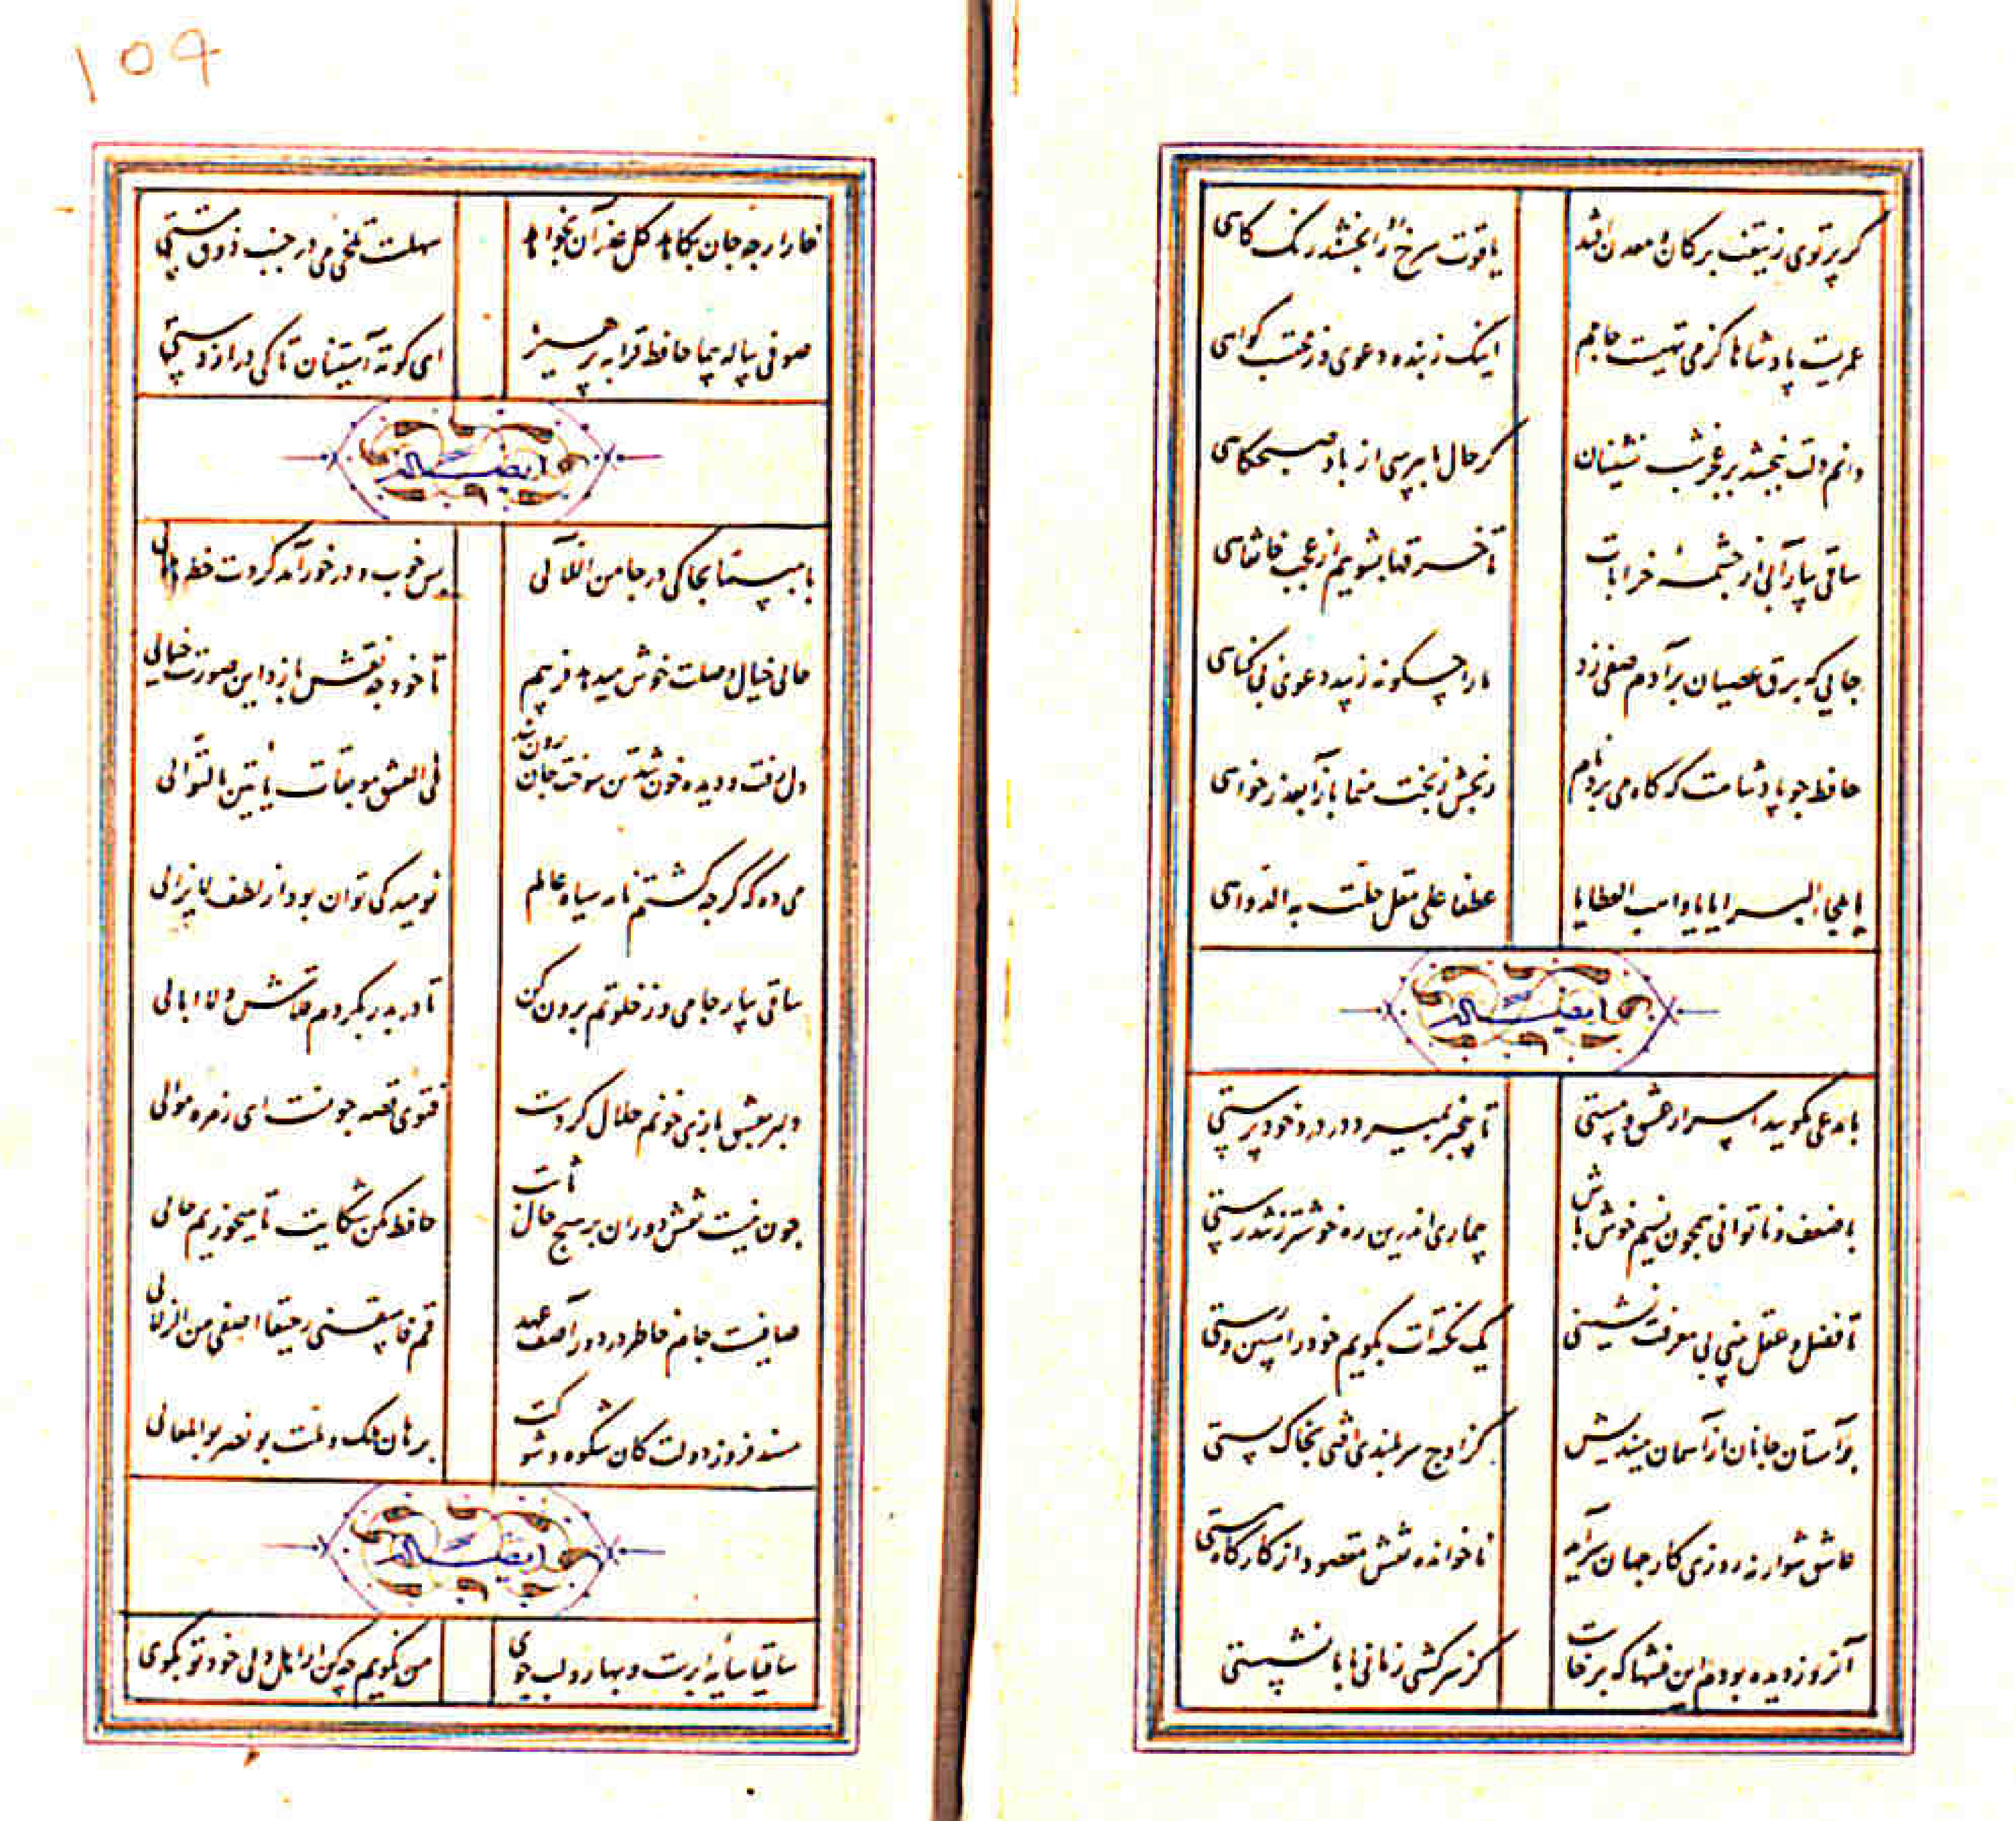 گر پرتوی ز تیغت بر کان و معدن افتد یاقوت سرخ رو را بخشند رنگ کاهی
عمریست پادشاها کز می تهیست جامم اینک ز بنده دعوی وز محتسب گواهی
دانم دلت ببخشد بر عجز شب نشینان گر حال ما بپرسی از باد صبحگاهی
ساقی بیار آبی از چشمهٔ خرابات تا خرقها بشویم از عجب خانقاهی
جایی که برق عصیان بر آدم صفی زد ما را چگونه زیبد دعوی بی گناهی
حافظ چو پادشاهت که گاه می برد نام رنجش ز بخت منما باز آ بعذر خواهی
یا ملجاء البرایا یا واهب العطایا عطفا علی مقل حلت به الدواهی
ایضاً له
با مدعی مگویید اسرار عشق و مستی تا بیخبر بمیرد در درد خود پرستی
با ضعف و ناتوانی همچون نسیم خوش باش بیماری اندرین ره خوشتر ز تندرستی
تا فضل و عقل بینی بی معرفت نشینی یک نکته‌ات بگویم خود را مبین و رستی
بر آستان جانان از آسمان میندیش کز اوج سربلندی افتی بخاک پستی
عاشق شو ار نه روزی کار جهان سرآید ناخوانده نقش مقصود از کارگاه هستی
آنروز دیده بودم این فتنها که برخاست کز سرکشی زمانی با ما نمی نشستی
۱۵۹
خار ارچه جان بکاهد گل عذر آن بخواهد سهلست تلخی می در جنب ذوق مستی
صوفی پیاله پیما حافظ قرابه پرهیز ای کوته آستینان تا کی دراز دستی
ایضاً له
یا مبسما یحاکی درجا من اللآلی یا رب چه در خور آمد گردت خط هلالی
حالی خیال وصلت خوش میدهد فریبم تا خود چه نقش بازد این صورت خیالی
دل رفت و دیده خون شد تن سوخت جان برون شد فی العشق موبقات یأتین بالتوالی
می ده که گرچه گشتم نامه سیاه عالم نومید کی توان بود از لطف لایزالی
ساقی بیار جامی وز خلوتم برون کن تا در بدر بگردم قلاش و لاابالی
دلبر بعشق بازی خونم حلال کردست فتوی قصه چونست ای زمره موالی
چون نیست نقش دوران بر هیچ حال ثابت حافظ مکن شکایت تا میخوریم حالی
صافیست جام خاطر در دور آصف عهد قم فاسقنی رحیقا اصفی من الزلالی
مسند فروز دولت کان شکوه و شوکت برهان ملک و ملت بو نصر بوالمعالی
ایضاً له
ساقیا سایه ابرست و بهار و لب جوی من نگویم چه کن ار اهل دلی خود تو بگوی